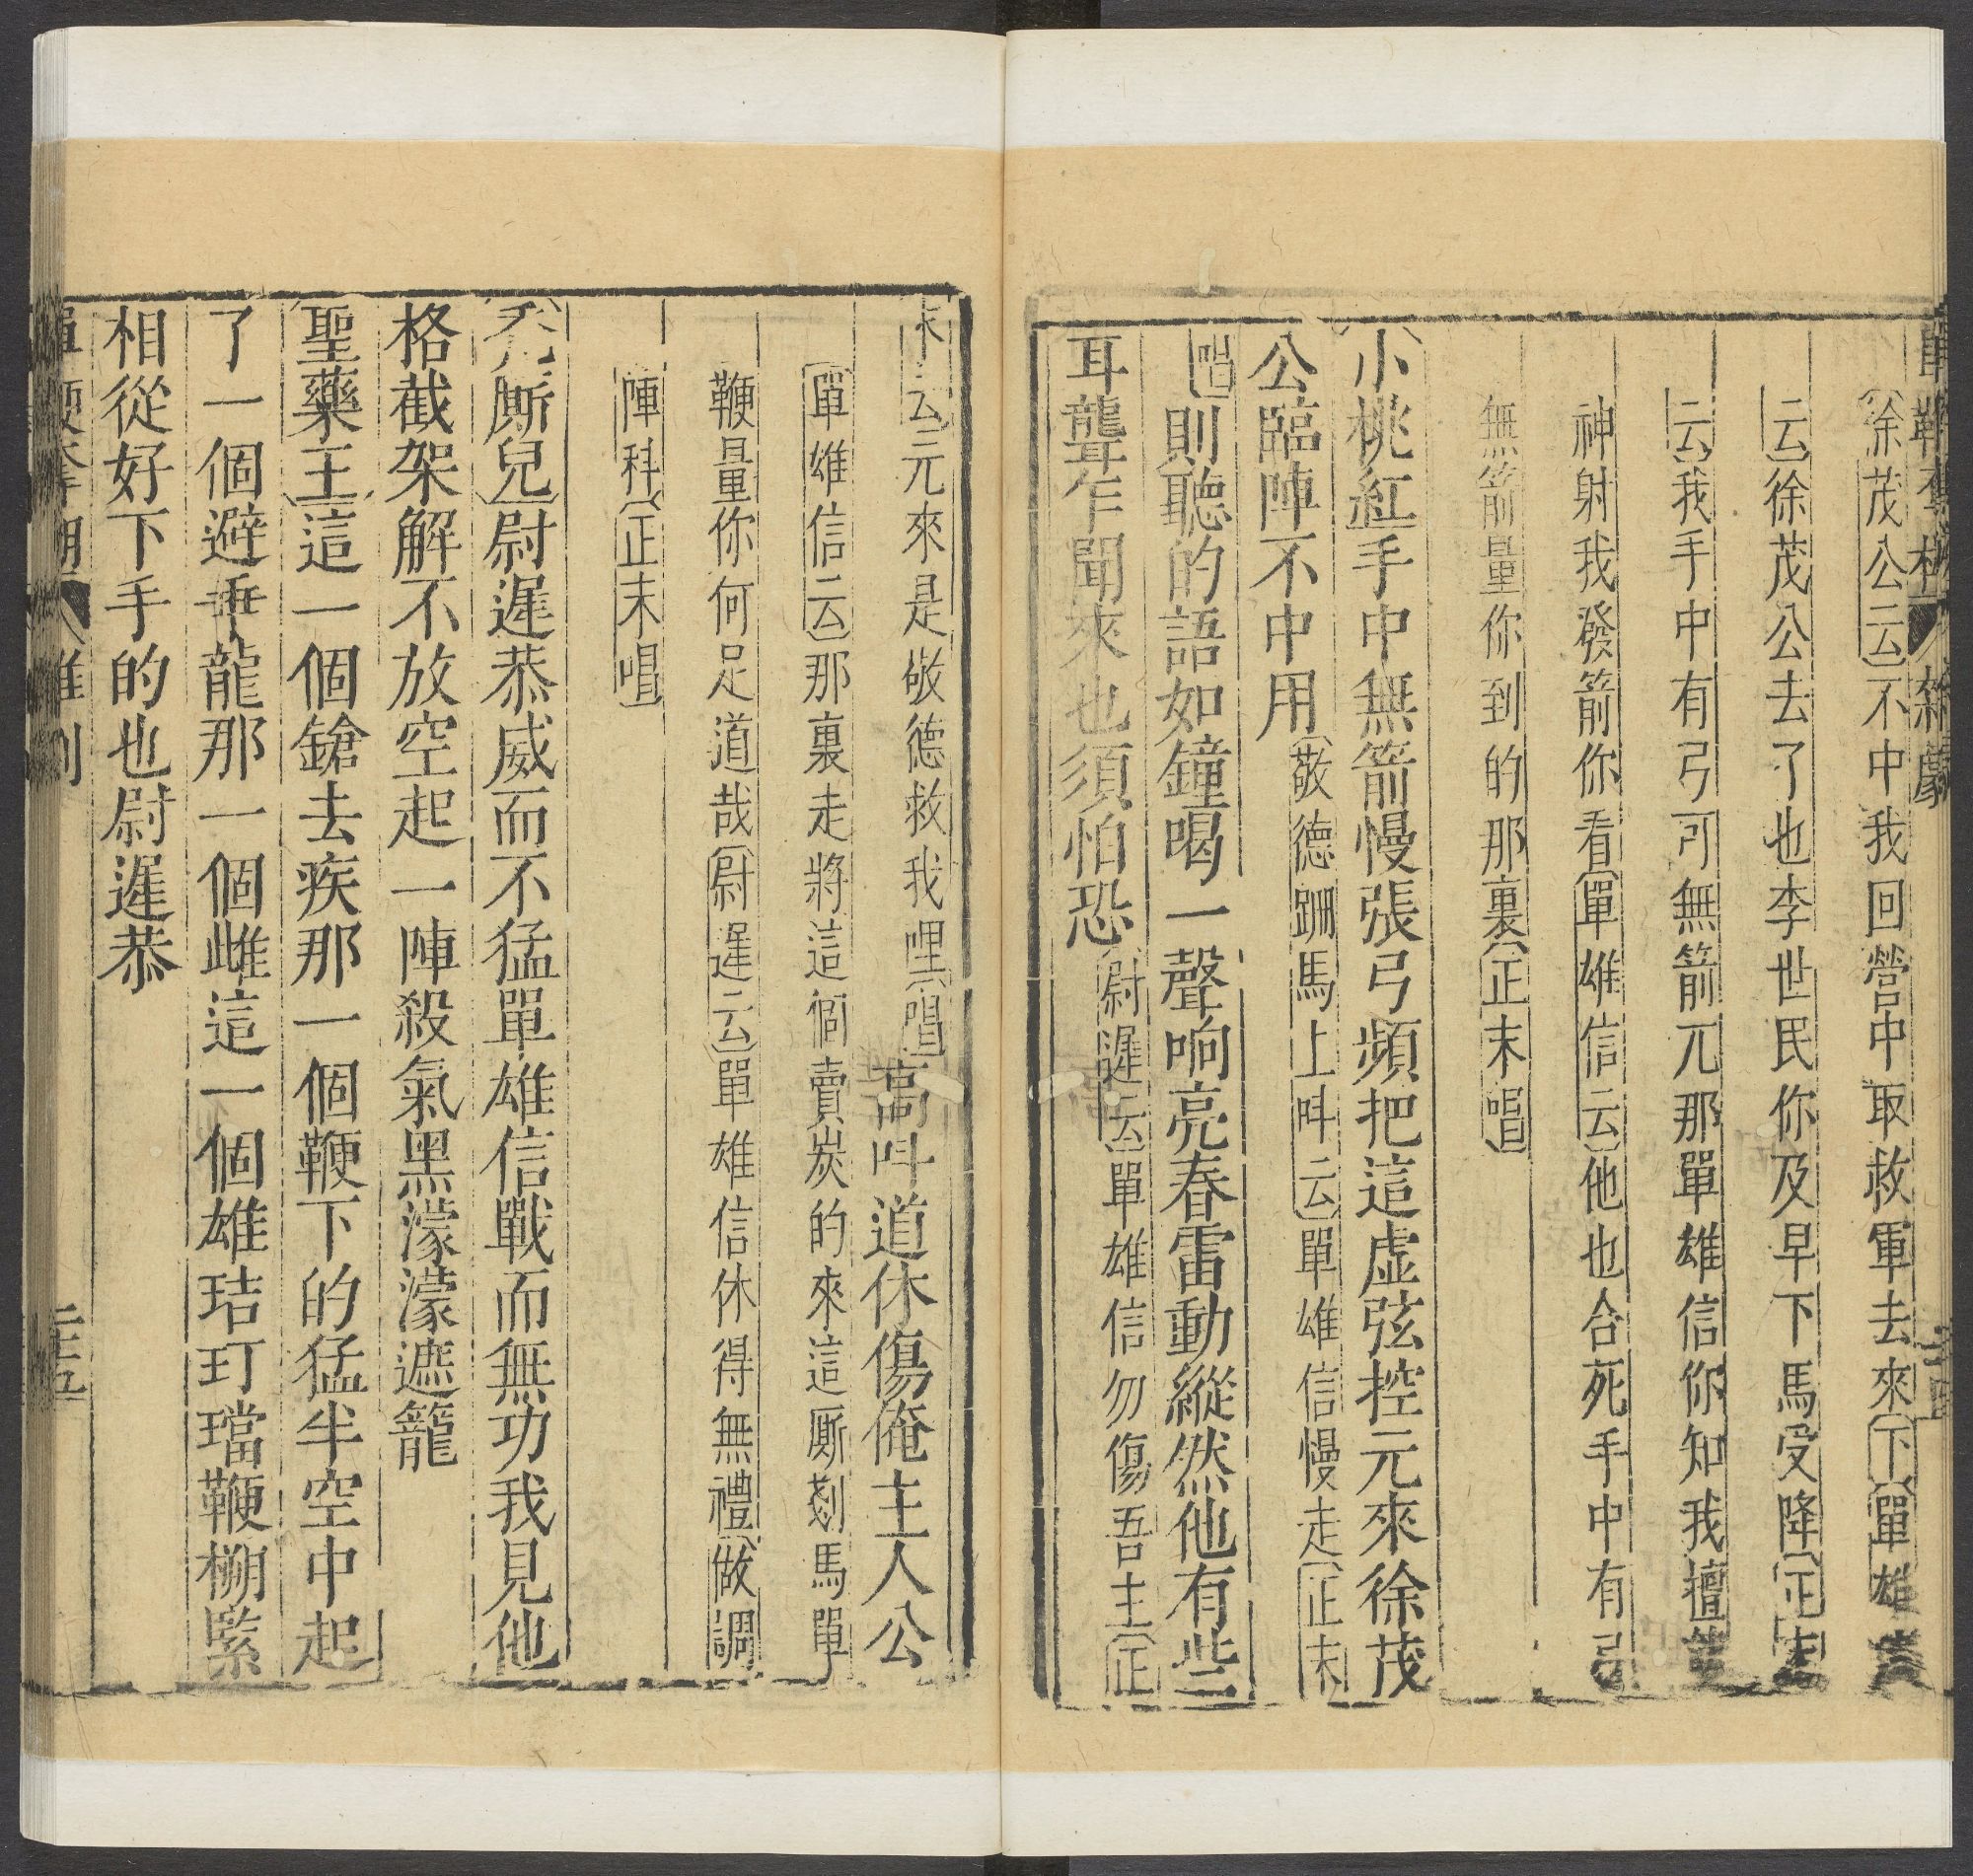 單鞭奪槊 雜劇
徐茂公云不中我回營中取救軍去來下單雄信
云徐茂公去了也李世民你及早下馬受降正末
云我手中有弓可無箭兀那單雄信你知我擅
神射我發箭你看單雄信云他也合死手中有弓
無箭量你到的那裏正末唱
小桃紅手中無箭慢張弓頻把這虛弦控元來徐茂
公臨陣不中用敬德跚馬上呌云單雄信慢走正末
唱則聽的語如鐘喝一聲响亮春雷動縱然他有些
耳聾乍聞來也須怕恐尉遲云單雄信勿傷吾主正
末云元來是敬德救我哩唱高呌道休傷俺主人公
單雄信云那裏走將這個賣炭的來這厮剗馬單
鞭量你何足道哉尉遲云單雄信休得無禮做調
陣科正末唱
禿厮兒尉遲恭威而不猛單雄信戰而無功我見他
格截架解不放空起一陣殺氣黑濛濛遮籠
聖藥王這一個鎗去疾那一個鞭下的猛半空中起
了一個避乖龍那一個雌這一個雄珪玎璫鞭槊緊
相從好下手的也尉遲恭
單鞭奪槊 雜劇 二十五